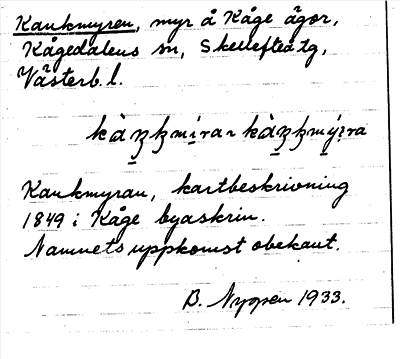 Kankmyren, myr å Kåge ägor,
Kågedalens sn, Skellefteå tg,
Västerb. l.
Kankmyran, kartbeskrivning
1849 i Kåge byaskrin.
Namnets uppkomst obekant.
B. Nygren 1933.